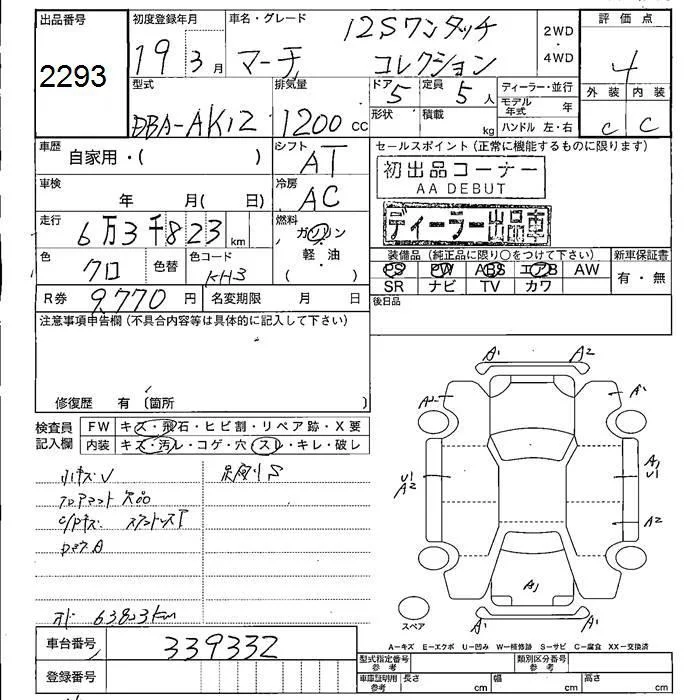 出品番号 2293
初度登録年月 19 3月
車名・グレード マーチ 12Sワンタッチ コレクション
2WD ・ 4WD
評価点 4
外装 内装
C C
型式 DBA-AK12
排気量 1200 CC
ドア 5
定員 5 人
形状
積載 kg
ディーラー・並行
モデル年式 年
ハンドル 左・右
車歴 自家用・( )
シフト AT
セールスポイント(正常に機能するものに限ります)
初出品コーナー
AA DEBUT
ディーラー出品車
車検 年 月( 日)
冷房 AC
走行 6万3千823km
燃料 ガソリン ・ 軽・油 ・ ( )
色 クロ
色替
色コード KH3
装備品(純正品に限り○をつけて下さい)
新車保証書
PS PW ABS エアB AW
有・無
SR ナビ TV カワ
R券 9,770 円
名変期限 月 日
後日品
注意事項申告欄(不具合内容等は具体的に記入して下さい)
修復歴 有 (箇所
検査員記入欄
FW キズ・飛石・ヒビ割・リペア跡・X要
内装 キズ・汚レ・コゲ・穴 スレ・キレ・破レ
小キズV
フロアマット欠品
A1 A2
A2 A1
U1 A2
A1 U1
A2
A1
A1 A1
スペア
メーター 63823km
A−キズ E−エクボ U−凹み W−補修跡 S−サビ C−腐食 XX−交換済
車台番号 339332
登録番号
型式指定番号 参考
類別区分番号 参考
車庫証明用 参考 長さ cm 幅 cm 高さ cm